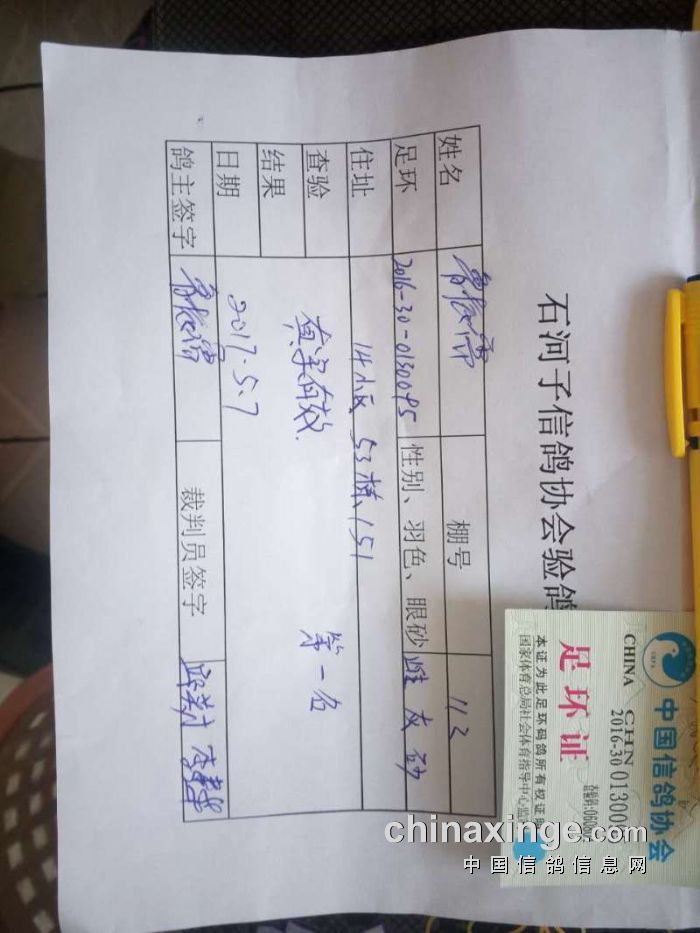 石河子信鸽协会验鸽
姓名 棚号 112
足环 2016-30-0130095 性别、羽色、眼砂 雌 灰 砂
住址 14小区 53栋 151
查验 真实有效 第一名
结果
日期 2017.5.7
鸽主签字 裁判员签字
中国信鸽协会
CHINA CHN
2016-30 01300
足环证
本证为此足环码鸽所有权证明
国家体育总局社会体育指导中心监
chinaxinge.com
中国信鸽信息网